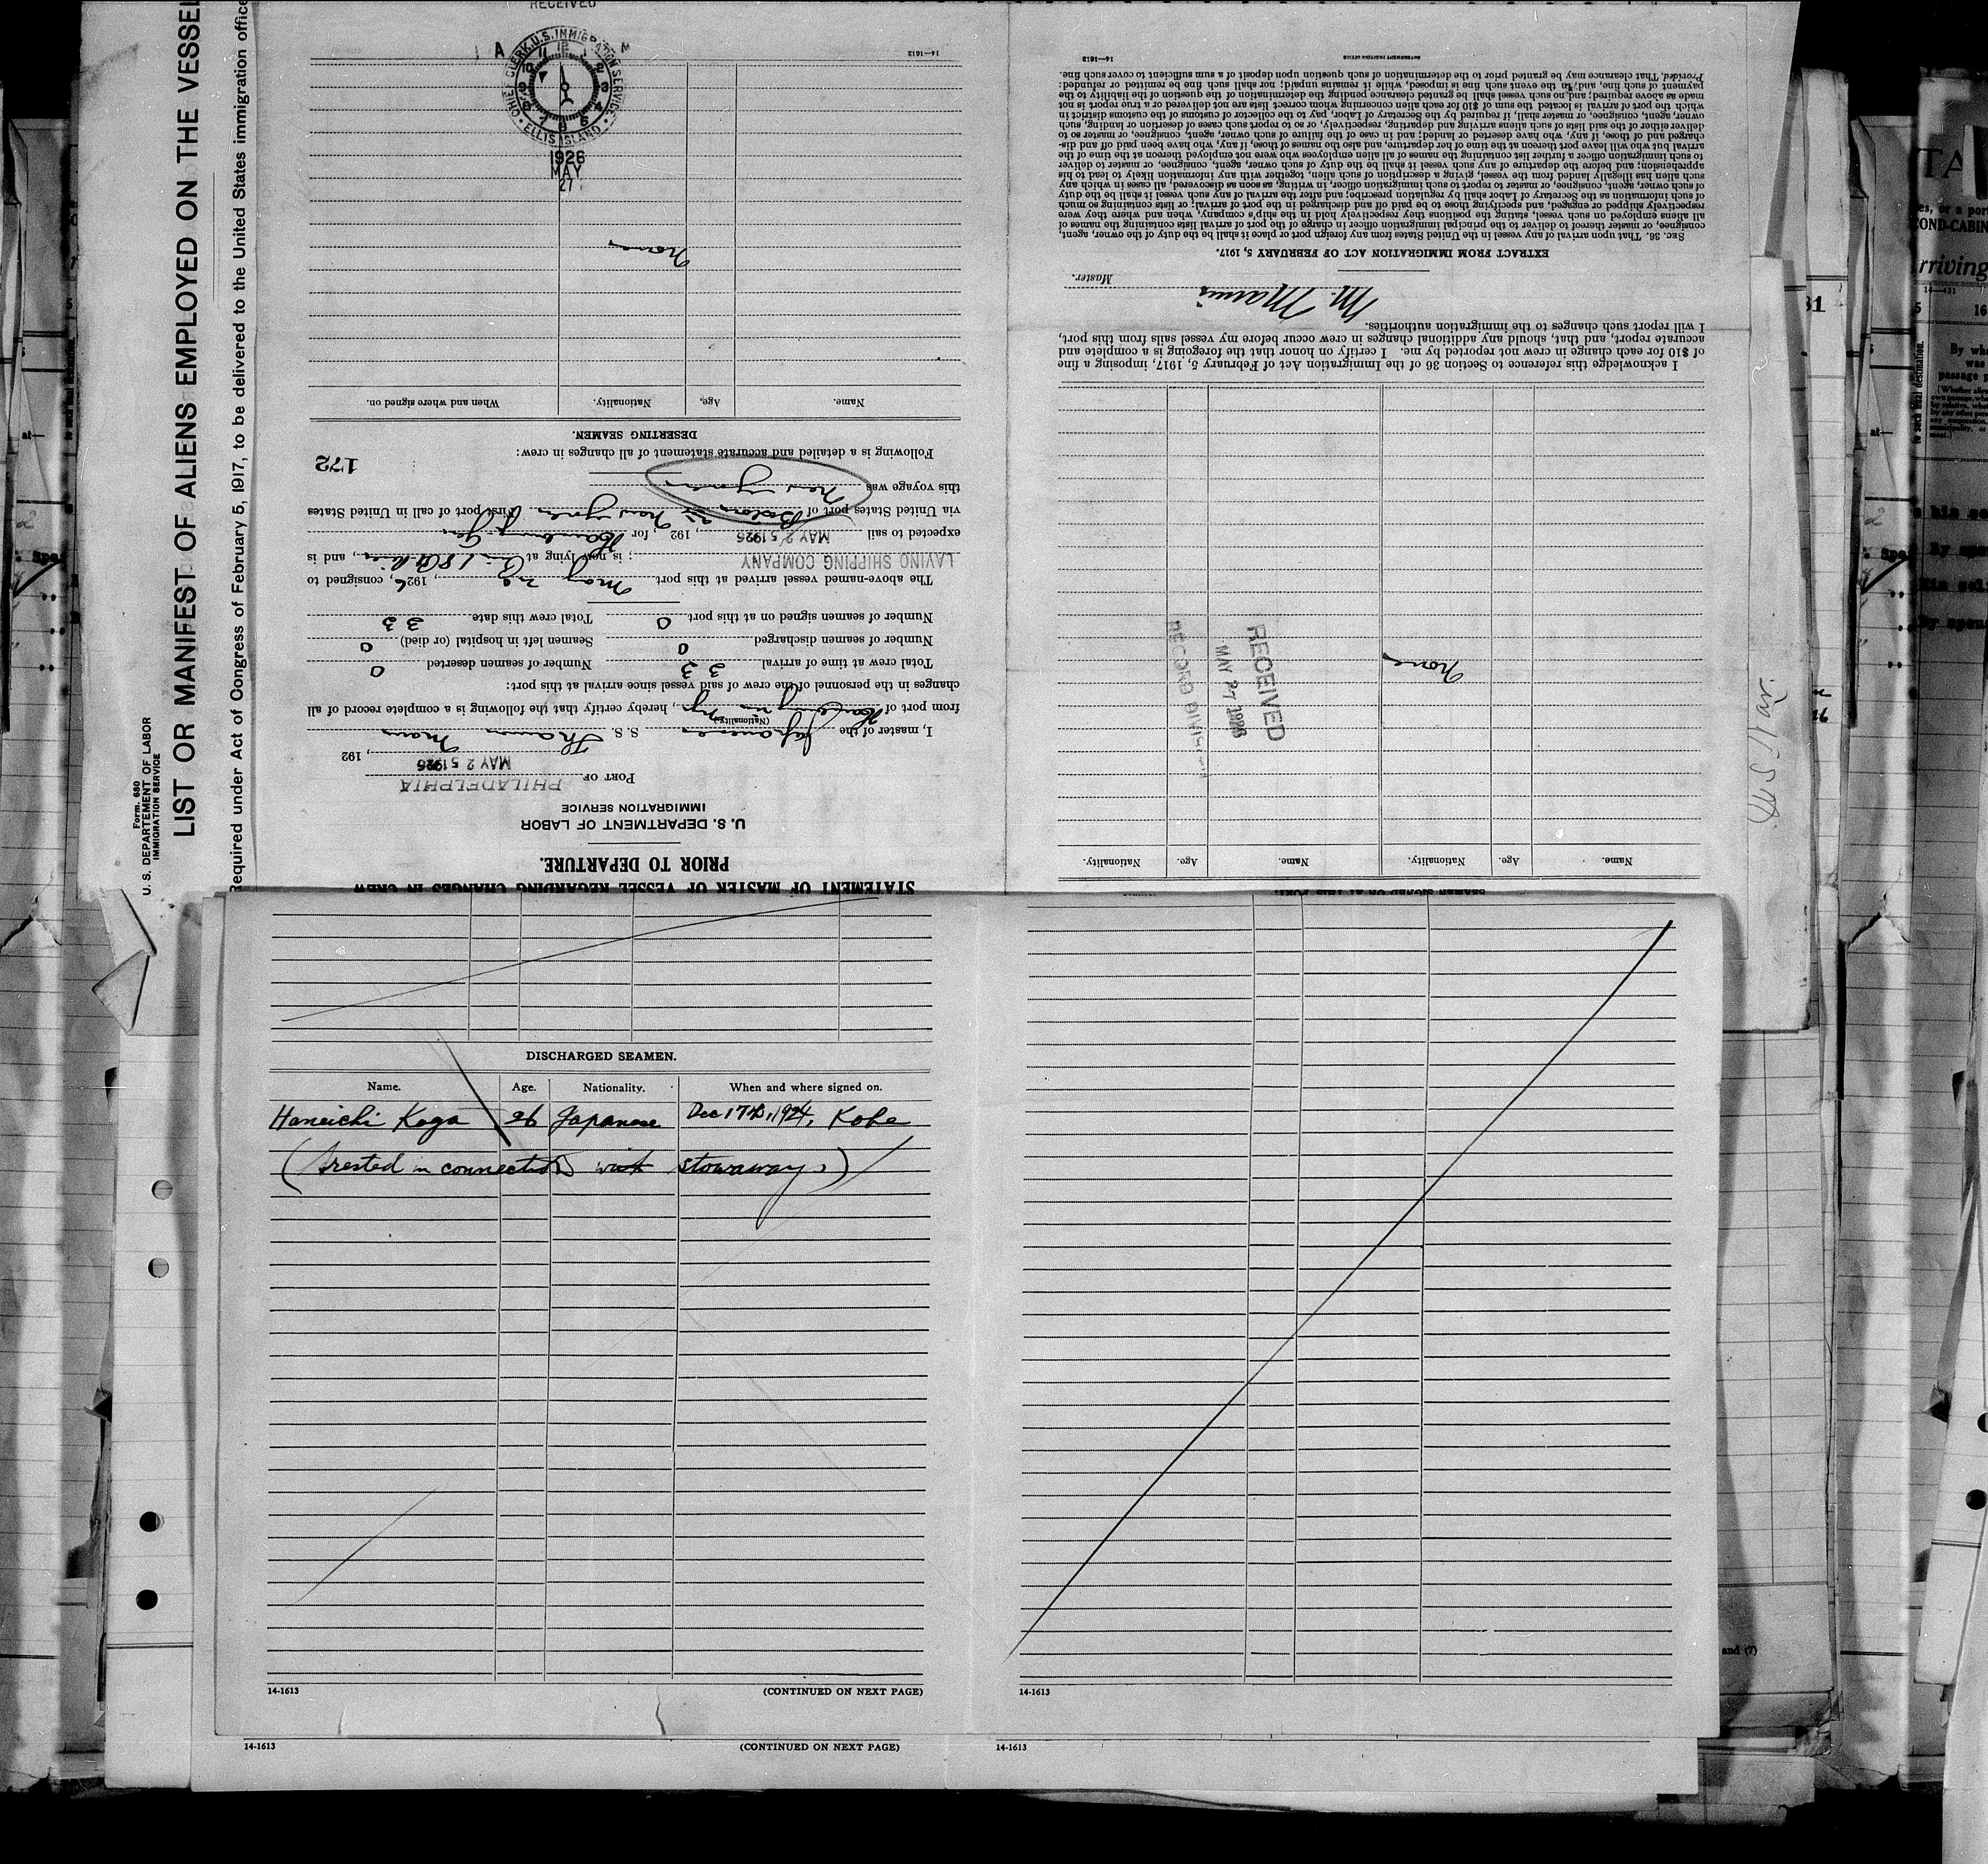 Form. 680
U. S. DEPARTMENT OF LABOR
IMMIGRATION SERVICE
LIST OR MANIFEST OF ALIENS EMPLOYED ON THE VESSEL
Required under Act of Congress of February 5, 1917, to be delivered to the United States immigration office
STATEMENT OF MASTER OF VESSEL REGARDING CHANGES IN CREW
PRIOR TO DEPARTURE.
U. S. DEPARTMENT OF LABOR
IMMIGRATION SERVICE
PORT OF PHILADELPHIA
MAY 25 1926, 192
I, master of the Japanese S. S.
(Nationality.)
from port of, hereby certify that the following is a complete record of all
changes in the personnel of the crew of said vessel since arrival at this port:
Total crew at time of arrival 33 Number of seamen deserted 0
Number of seamen discharged 0 Seamen left in hospital (or died) 0
Number of seamen signed on at this port 0 Total crew this date 33
The above-named vessel arrived at this port May, 1926, consigned to
LAVINO SHIPPING COMPANY; is now lying at, and is
expected to sail MAY 25 1926, 192, for Hamburg
via United States port of Boston New York First port of call in United States
this voyage was New York
Following is a detailed and accurate statement of all changes in crew:
172
DESERTING SEAMEN.
Name. Age. Nationality. When and where signed on.
None
14-1613
RECEIVED
U.S. IMMIGRATION SERVICE
ELLIS ISLAND
1926
MAY
27
SEAMEN SIGNED ON AT THIS PORT.
Name. Age. Nationality. Name. Age. Nationality.
None
RECEIVED
MAY 27 1926
RECORD DIVISION
I acknowledge this reference to Section 36 of the Immigration Act of February 5, 1917, imposing a fine
of $10 for each change in crew not reported by me. I certify on honor that the foregoing is a complete and
accurate report, and that, should any additional changes in crew occur before my vessel sails from this port,
I will report such changes to the immigration authorities.
Master.
EXTRACT FROM IMMIGRATION ACT OF FEBRUARY 5, 1917.
SEC. 36. That upon arrival of any vessel in the United States from any foreign port or place it shall be the duty of the owner, agent,
consignee, or master thereof to deliver to the principal immigration officer in charge of the port of arrival lists containing the names of
all aliens employed on such vessel, stating the positions they respectively hold in the ship's company, when and where they were
respectively shipped or engaged, and specifying those to be paid off and discharged in the port of arrival; or lists containing so much
of such information as the Secretary of Labor shall by regulation prescribe; and after the arrival of any such vessel it shall be the duty
of such owner, agent, consignee, or master to report to such immigration officer, in writing, as soon as discovered, all cases in which any
such alien has illegally landed from the vessel, giving a description of such alien, together with any information likely to lead to his
apprehension; and before the departure of any such vessel it shall be the duty of such owner, agent, consignee, or master to deliver
to such immigration officer a further list containing the names of all alien employees who were not employed thereon at the time of the
arrival but who will leave port thereon at the time of her departure, and also the names of those, if any, who have been paid off and dis-
charged and of those, if any, who have deserted or landed; and in case of the failure of such owner, agent, consignee, or master so to
deliver either of the said lists of such aliens arriving and departing, respectively, or so to report such cases of desertion or landing, such
owner, agent, consignee, or master shall, if required by the Secretary of Labor, pay to the collector of customs of the customs district in
which the port of arrival is located the sum of $10 for each alien concerning whom correct lists are not delivered or a true report is not
made as above required; and no such vessel shall be granted clearance pending the determination of the question of the liability to the
payment of such fine, and, in the event such fine is imposed, while it remains unpaid; nor shall such fine be remitted or refunded:
Provided, That clearance may be granted prior to the determination of such question upon deposit of a sum sufficient to cover such fine.
14-1613 GOVERNMENT PRINTING OFFICE
DISCHARGED SEAMEN.
Name. Age. Nationality. When and where signed on.
Haneichi Koga 26 Japanese Dec 17th, 1924, Kobe
(Arested in connection with stowaways)
14-1613 (CONTINUED ON NEXT PAGE) 14-1613
14-1613 (CONTINUED ON NEXT PAGE) 14-1613
and (7)